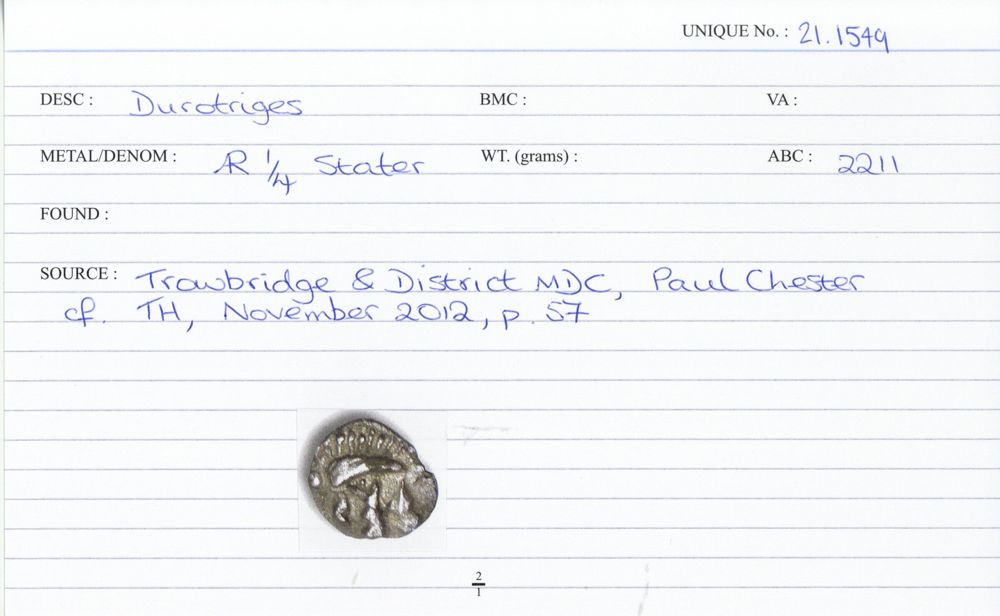 UNIQUE No. : 21.1549
DESC : Durotriges BMC : VA :
METAL/DENOM : AR 1/4 Stater WT. (grams) : ABC : 2211
FOUND :
SOURCE : Trowbridge & District MDC, Paul Chester
cf. TH, November 2012, p. 57
2
1